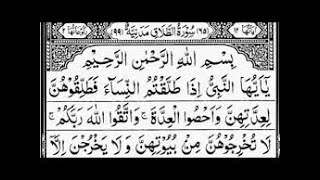 اٰیَاتُهَا ١٢ (٦٥) سُوْرَةُ الطَّلَاقِ مَدَنِيَّةٌ (٩٩) رُكُوْعَاتُهَا ٢
بِسْمِ اللّٰهِ الرَّحْمٰنِ الرَّحِيْمِ
يٰۤاَيُّهَا النَّبِيُّ اِذَا طَلَّقْتُمُ النِّسَآءَ فَطَلِّقُوْهُنَّ
لِعِدَّتِهِنَّ وَاَحْصُوا الْعِدَّةَ ۚ وَاتَّقُوا اللّٰهَ رَبَّكُمْ ۚ
لَا تُخْرِجُوْهُنَّ مِنْۢ بُيُوْتِهِنَّ وَلَا يَخْرُجْنَ اِلَّاۤ